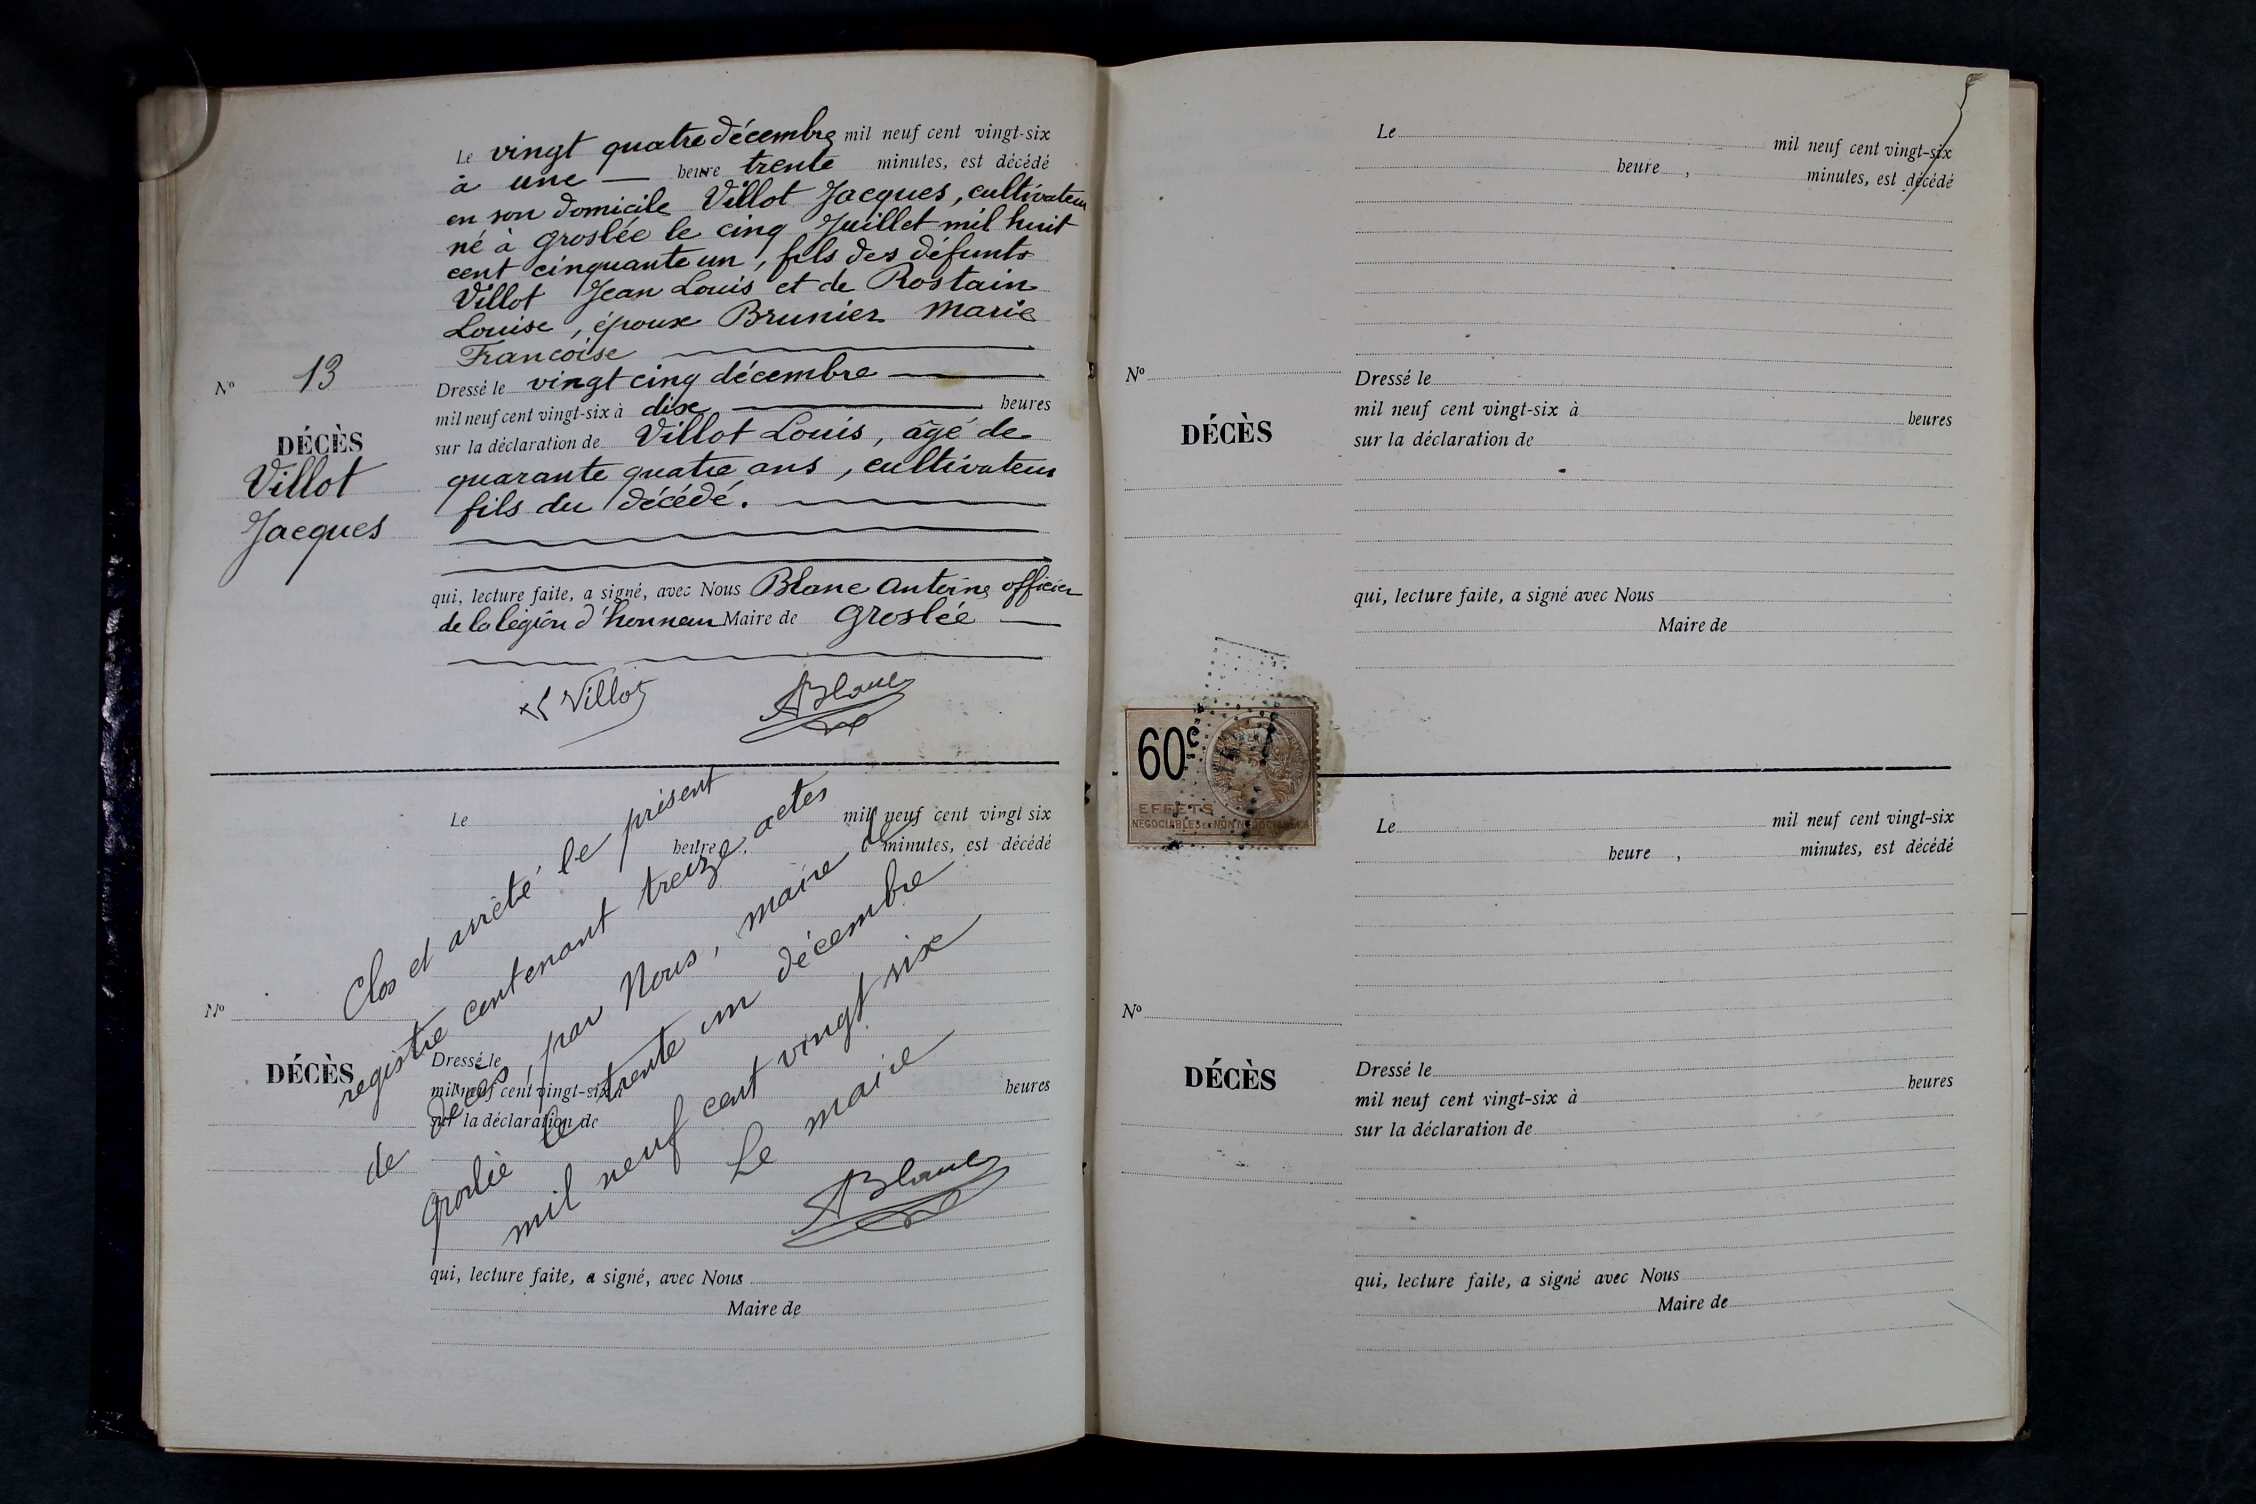 Le vingt quatre décembre mil neuf cent vingt-six
à une heure trente minutes, est décédé
en son domicile Villot Jacques, cultivateur
né à Groslée le cinq Juillet mil huit
cent cinquante un, fils des défunts
Villot Jean Louis et de Rostain
Louise, époux Brunier Marie
Francoise
N° 13
DÉCÈS
Villot
Jacques
Dressé le vingt cinq décembre
mil neuf cent vingt-six à dix heures
sur la déclaration de Villot Louis, âgé de
quarante quatre ans, cultivateur
fils du décédé.
qui, lecture faite, a signé, avec Nous Blanc Antoine officier
de la légion d'honneur Maire de Groslée
L Villot
ABlanc
Le mil neuf cent vingt six
heure, minutes, est décédé
N°
DÉCÈS
Dressé le
mil neuf cent vingt-six à heures
sur la déclaration de
qui, lecture faite, a signé, avec Nous
Maire de
Clos et arrêté le présent
registre contenant treize actes
de décès, par Nous, maire de
Groslée le trente un décembre
mil neuf cent vingt six
Le maire
ABlanc
Le mil neuf cent vingt-six
heure, minutes, est décédé
N°
DÉCÈS
Dressé le
mil neuf cent vingt-six à heures
sur la déclaration de
qui, lecture faite, a signé avec Nous
Maire de
60c
EFFETS
NÉGOCIABLES ET NON NÉGOCIABLES
Le mil neuf cent vingt-six
heure, minutes, est décédé
N°
DÉCÈS
Dressé le
mil neuf cent vingt-six à heures
sur la déclaration de
qui, lecture faite, a signé avec Nous
Maire de